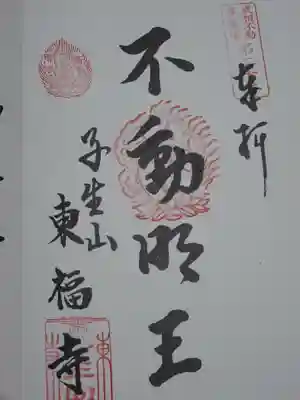 奉拝
不動明王
子生山
東福寺